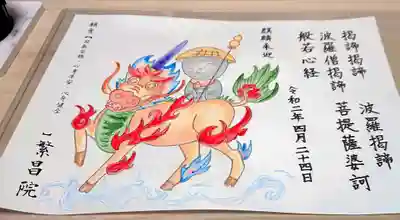 揭諦揭諦　波羅揭諦
波羅僧揭諦　菩提薩婆訶
般若心経
令和二年四月二十四日
麒麟来迎
繁昌院